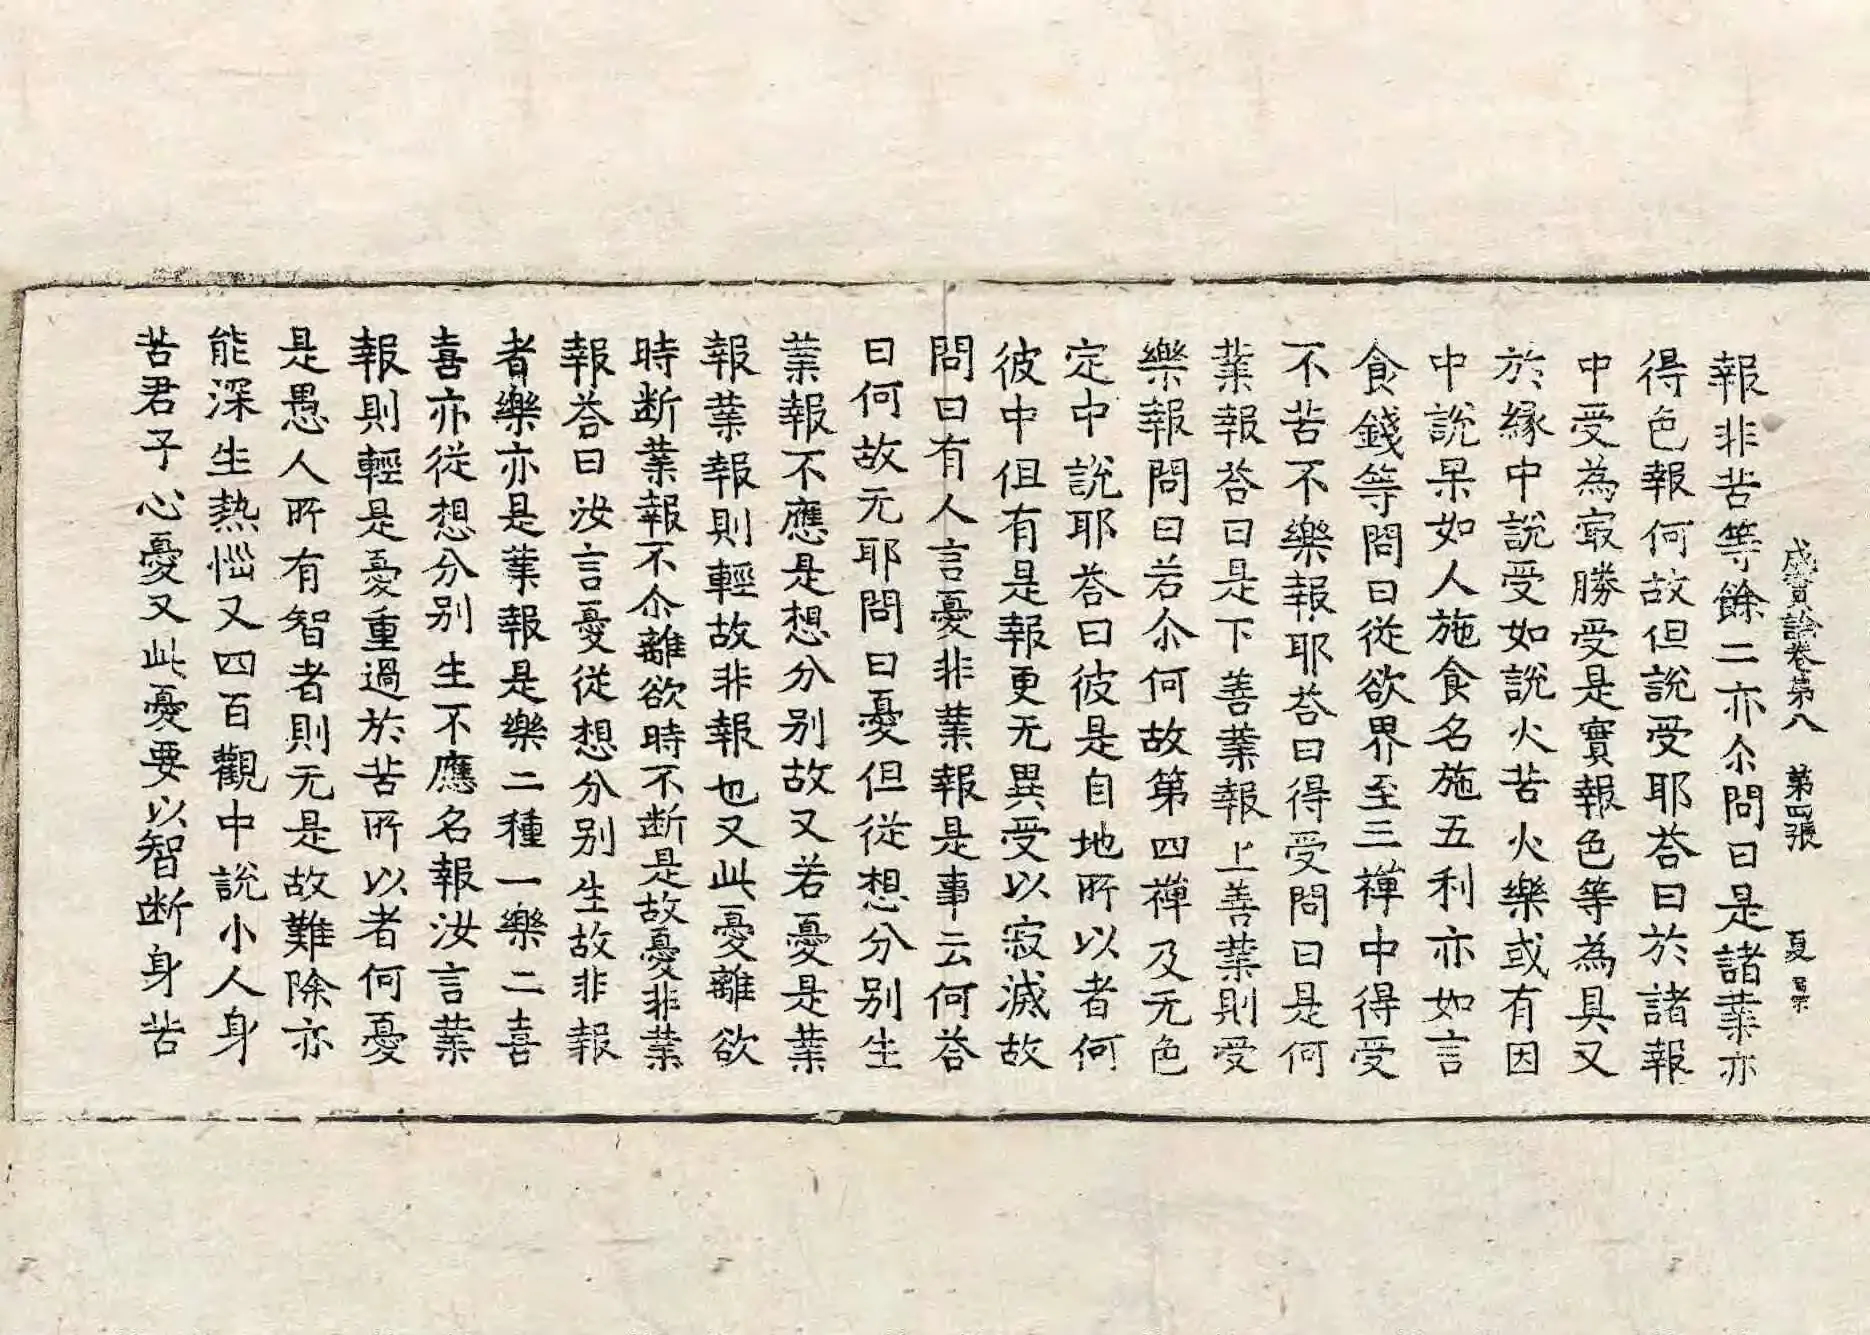 成實論卷第八 第四張 夏
報非苦等餘二亦尒問曰是諸業亦
得色報何故但說受耶荅曰於諸報
中受為㝡勝受是實報色等為具又
於縁中說受如說火苦火樂或有因
中說果如人施食名施五利亦如言
食錢等問曰從欲界至三禪中得受
不苦不樂報耶荅曰得受問曰是何
業報荅曰是下善業報上善業則受
樂報問曰若尒何故第四禪及无色
定中說耶荅曰彼是自地所以者何
彼中但有是報更无異受以寂滅故
問曰有人言憂非業報是事云何荅
曰何故无耶問曰憂但從想分別生
業報不應是想分別故又若憂是業
報業報則輕故非報也又此憂離欲
時断業報不尒離欲時不断是故憂非業
報荅曰汝言憂從想分別生故非報
者樂亦是業報是樂二種一樂二喜
喜亦從想分別生不應名報汝言業
報則輕是憂重過於苦所以者何憂
是愚人所有智者則无是故難除亦
能深生熱惱又四百觀中說小人身
苦君子心憂又此憂要以智断身苦